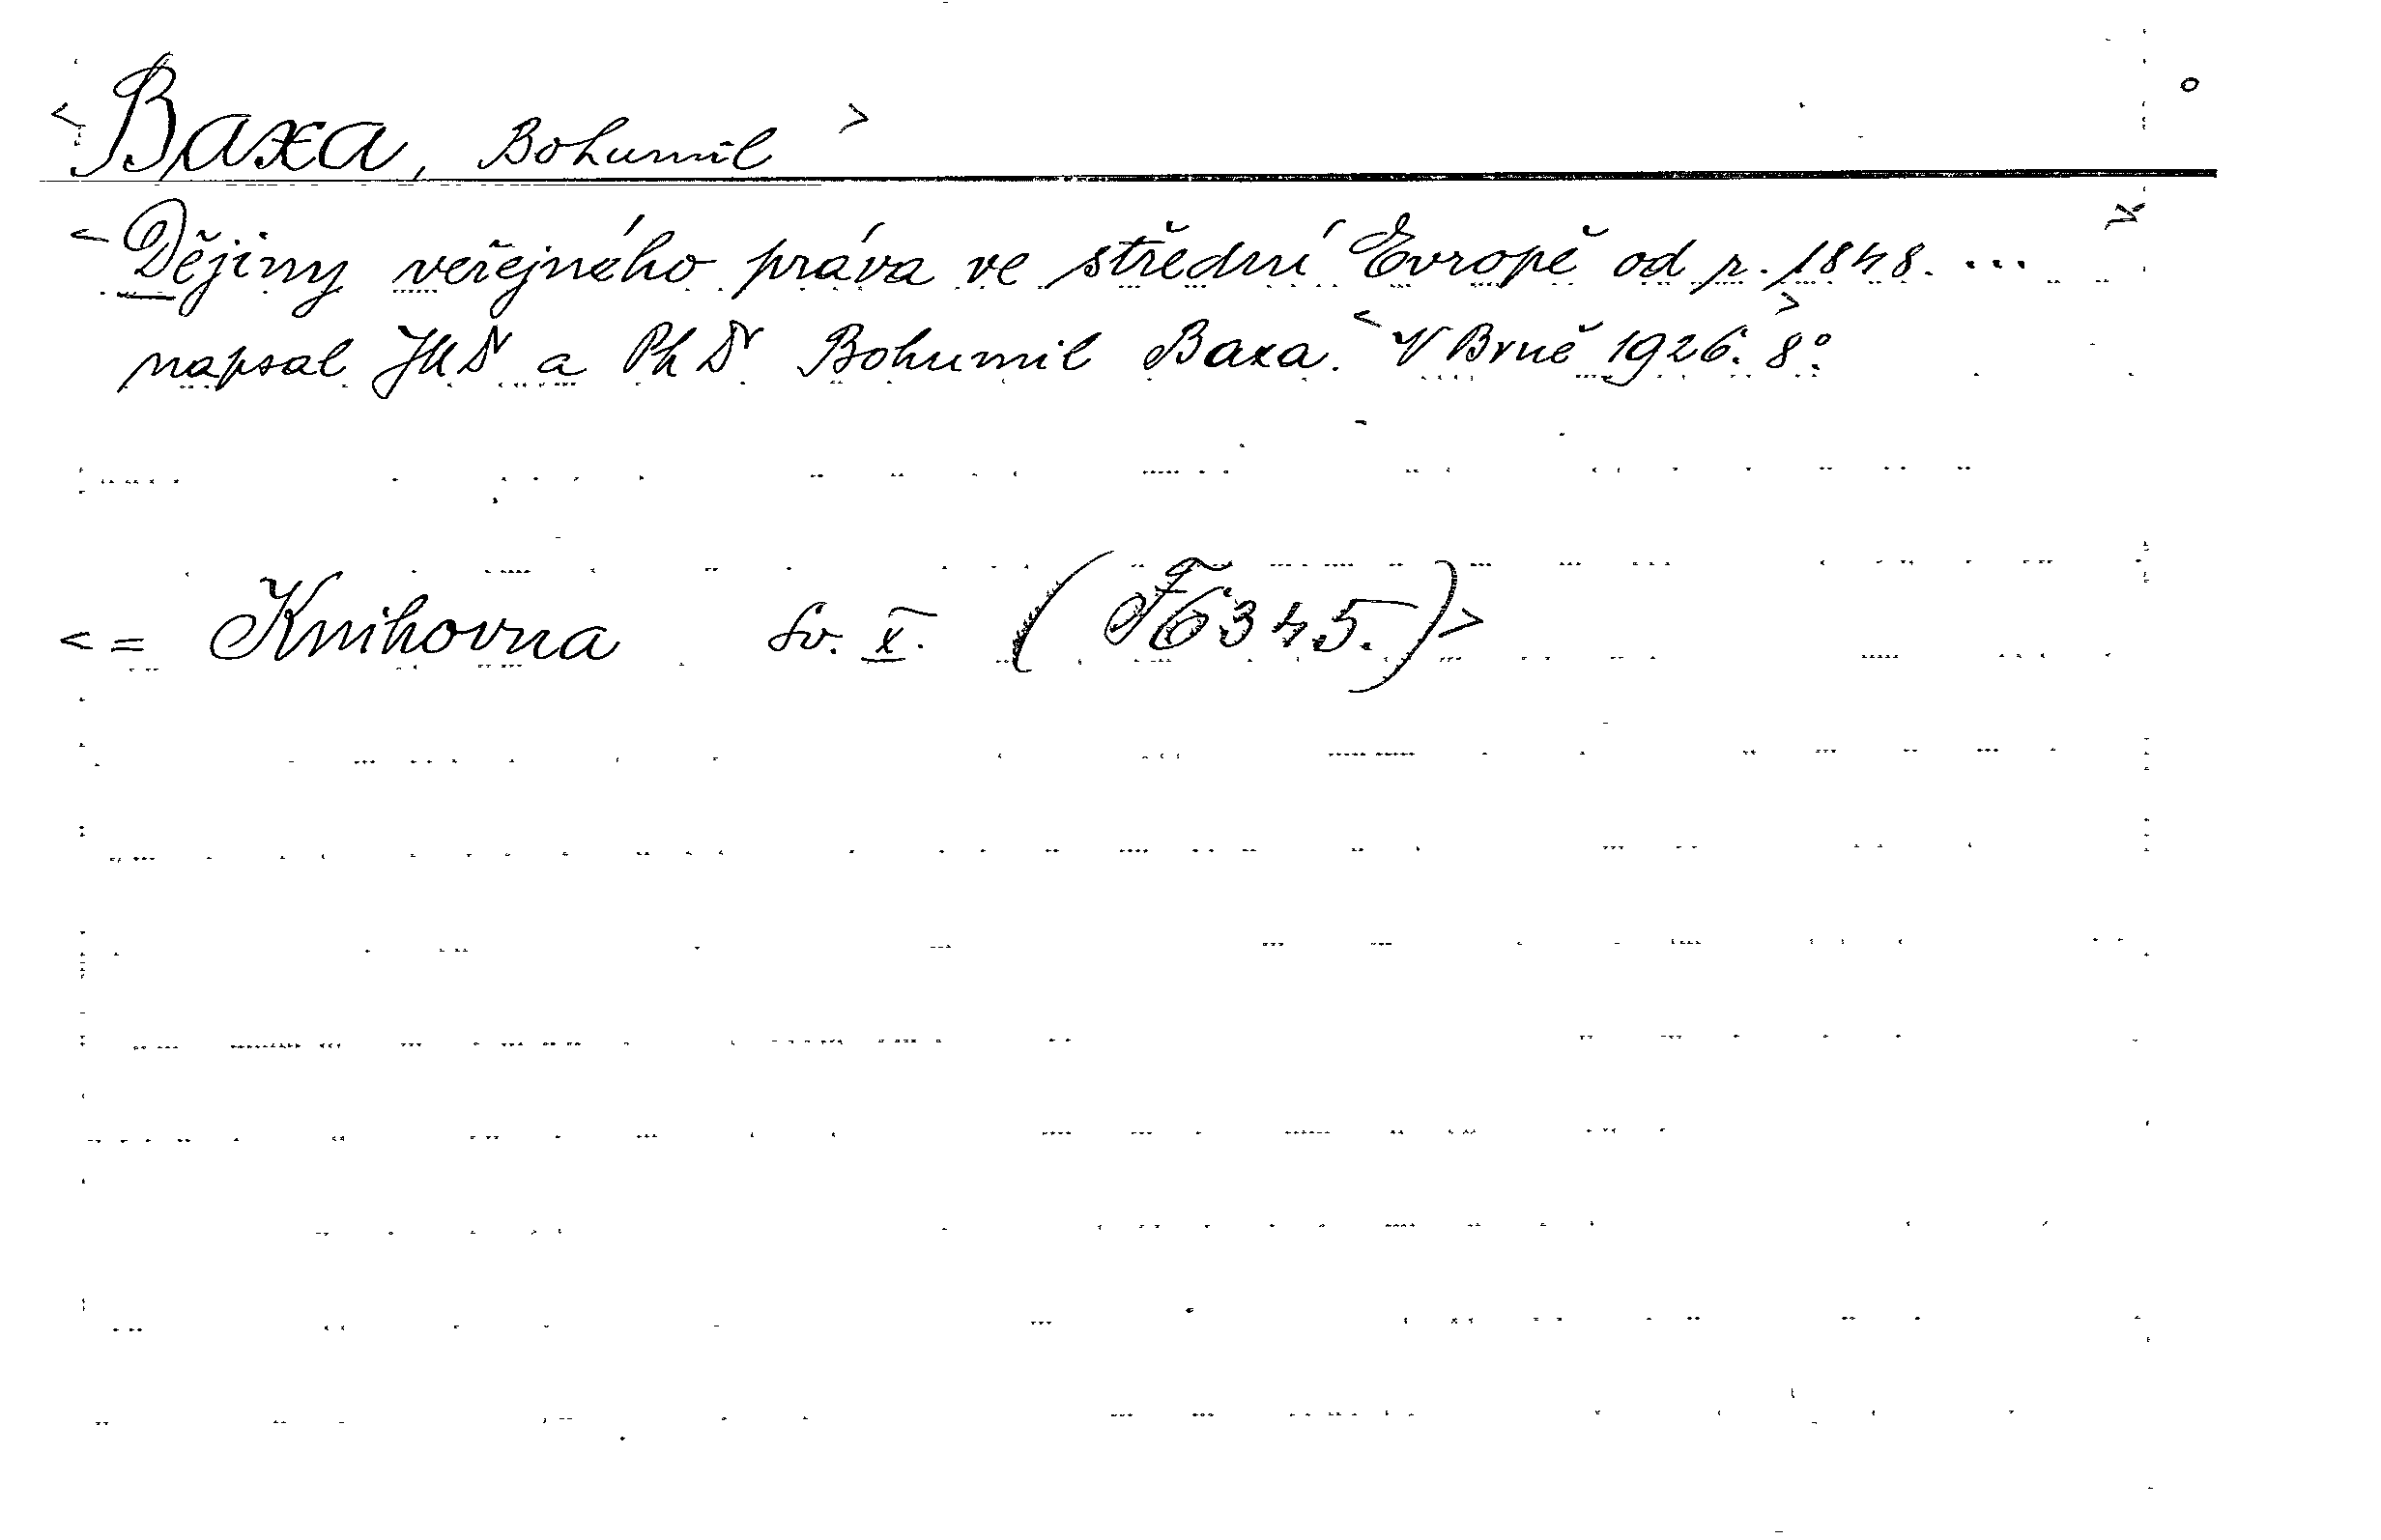 <Baxa, Bohumil>
<Dějiny veřejného práva ve střední Evropě od r. 1848. ...>
napsal JUDr a PhDr Bohumil Baxa. <V Brně 1926.> 8°.
<= Knihovna sv. X. (F6345.)>